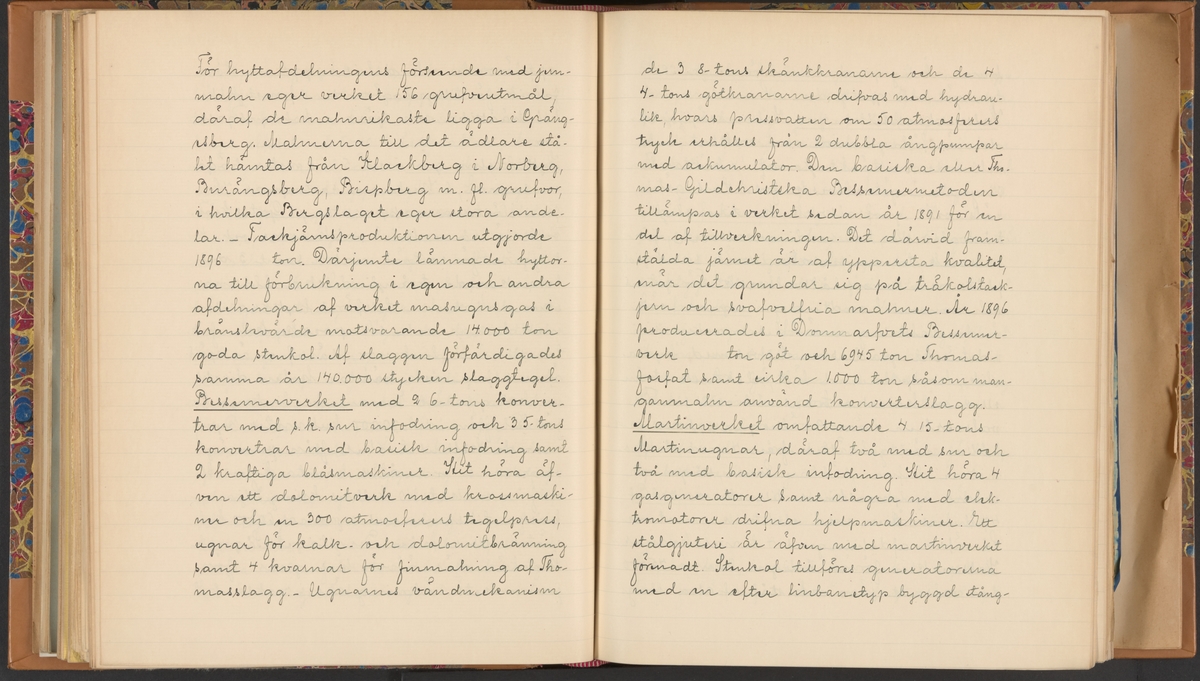 För hyttafdelningens förseende med jern-
malm eger verket 156 grufveutmål,
däraf de malmrikaste ligga i Gräng-
esberg. Malmerna till det ädlare stå-
let hämtas från Klackberg i Norberg,
Burängsberg, Bispberg m. fl. grufvor,
i hvilka Bergslaget eger stora ande-
lar. – Tackjärnsproduktionen utgjorde
1896 ton. Därjemte lämnade hyttor-
na till förbrukning i egen och andra
afdelningar af verket masugnsgas i
bränslevärde motsvarande 14.000 ton
goda stenkol. Af slaggen förfärdigades
samma år 140.000 stycken slaggtegel.
Bessemerverket med 2 6-tons konver-
trar med s.k. sur infodring och 3 5-tons
konvertrar med basisk infodring samt
2 kraftiga blåsmaskiner. Hit höra äf-
ven ett dolomitverk med krossmaski-
ner och en 300 atmosferers tegelpress,
ugnar för kalk- och dolomitbränning
samt 4 kvarnar för finmalning af Tho-
masslagg. – Ugnarnes vändmekanism
de 3 8-tons skänkkranarne och de 4
4-tons götkranarne drifvas med hydrau-
lik, hvars pressvatten om 50 atmosferers
tryck erhålles från 2 dubbla ångpumpar
med ackumulator. Den basiska eller Tho-
mas-Gildchristska Bessemermetoden
tillämpas i verket sedan år 1891 för en
del af tillverkningen. Det därvid fram-
stälda järnet är af yppersta kvalitet,
enär det grundar sig på träkolstack-
jern och svafvelfria malmer. År 1896
producerades i Domnarfvets Bessemer-
verk ton göt och 6945 ton Thomas-
fosfat samt cirka 1.000 ton såsom man-
ganmalm använd konverterslagg.
Martinverket omfattande 4 15-tons
Martinugnar, däraf två med sur och
två med basisk infodring. Hit höra 4
gasgeneratorer samt några med elek-
tromotorer drifna hjelpmaskiner. Ett
stålgjuteri är äfven med martinverket
förenadt. Stenkol tillföres generatorerna
med en efter linbanetyp byggd stång-